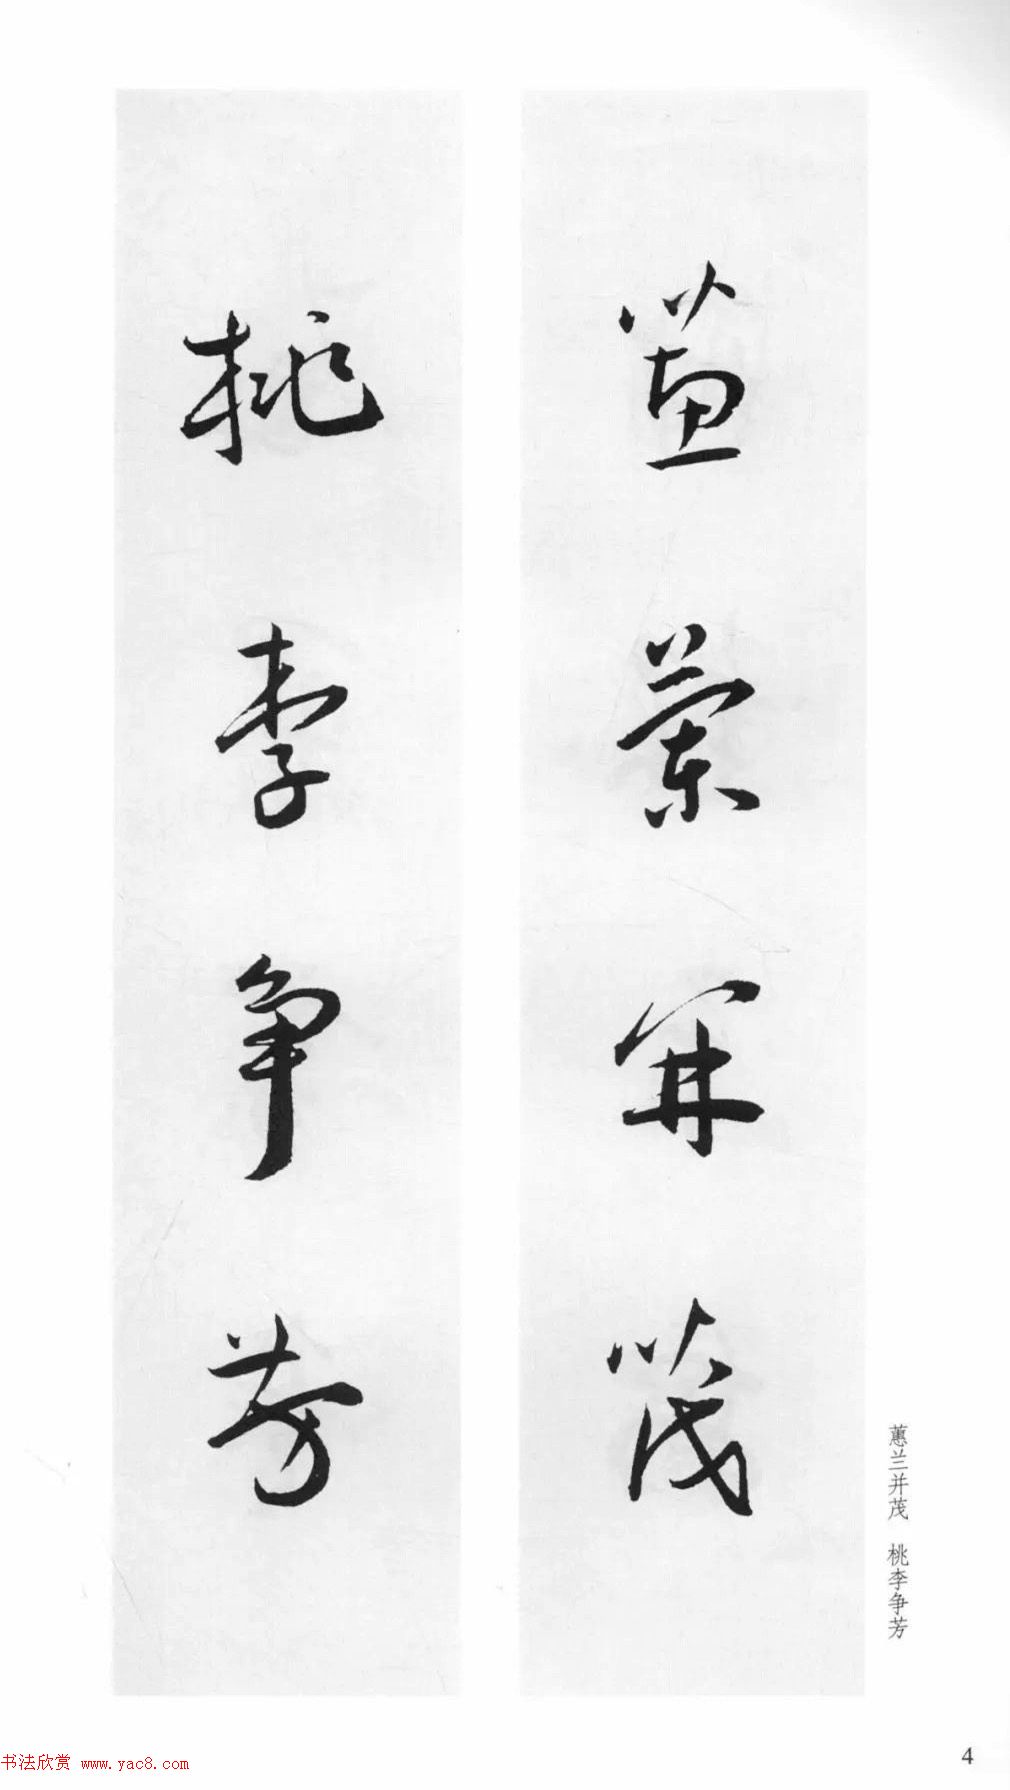 蕙蘭并茂
桃李争芳
蕙兰并茂 桃李争芳
书法欣赏 www.yac8.com
4